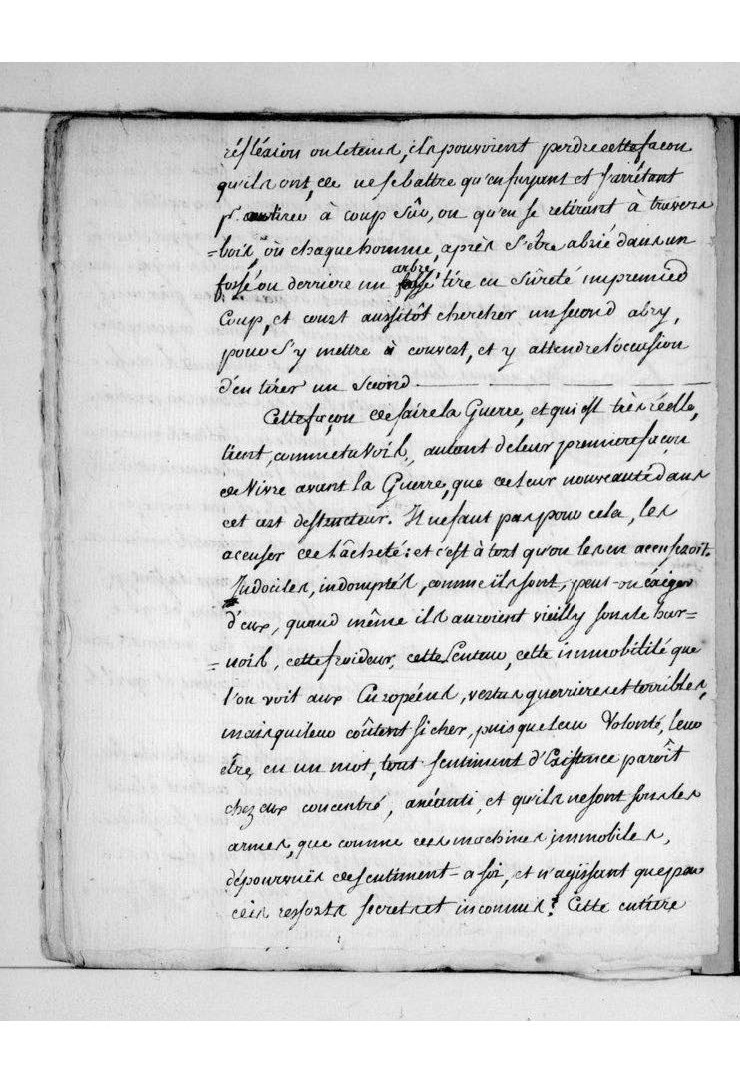 réfléxion ou letems, ils pouvoient perdre cette façon
qu'ils ont, de ne se battre qu'en fuyant et s'arrêtant
pr. tirer à coup sûr, ou qu'en se retirant à travers
=bois, où chaque homme, après s'être abrié dans un
fossé ou derriere un arbre, tire en sûreté un premied
Coup, et court aussitôt chercher un second abry,
pour s'y mettre à couvert, et y attendre l'occasion
d'en tirer un Second
Cette façon de faire la Guerre, et qui est très réelle,
tient, comme tu Vois, autant de leur premiere façon
de Vivre avant la Guerre, que de leur nouveauté dans
cet art destructeur. Il ne faut pas pour cela, les
accuser de lâcheté: et c'est à tort qu'on les en accuseroit.
Indociles, indomptés, comme ils sont, peut-on éxiger
d'eux, quand même ils auroient vieilly sous le har=
=nois, cette froideur, cette Lenteur, cette immobilité que
l'on voit aux Européens, vertus guerrieres et terribles,
mais qui leur coûtent si cher, puisque leur Volonté, leur
être, en un mot, tout sentiment d'Existence paroît
chez eux concentré, anéanti, et qu'ils ne sont sous les
armes, que comme des machines immobiles,
dépourvuës de sentiment-a soi, et n'agissant que par
des ressorts secrets et inconnus? Cette entiere